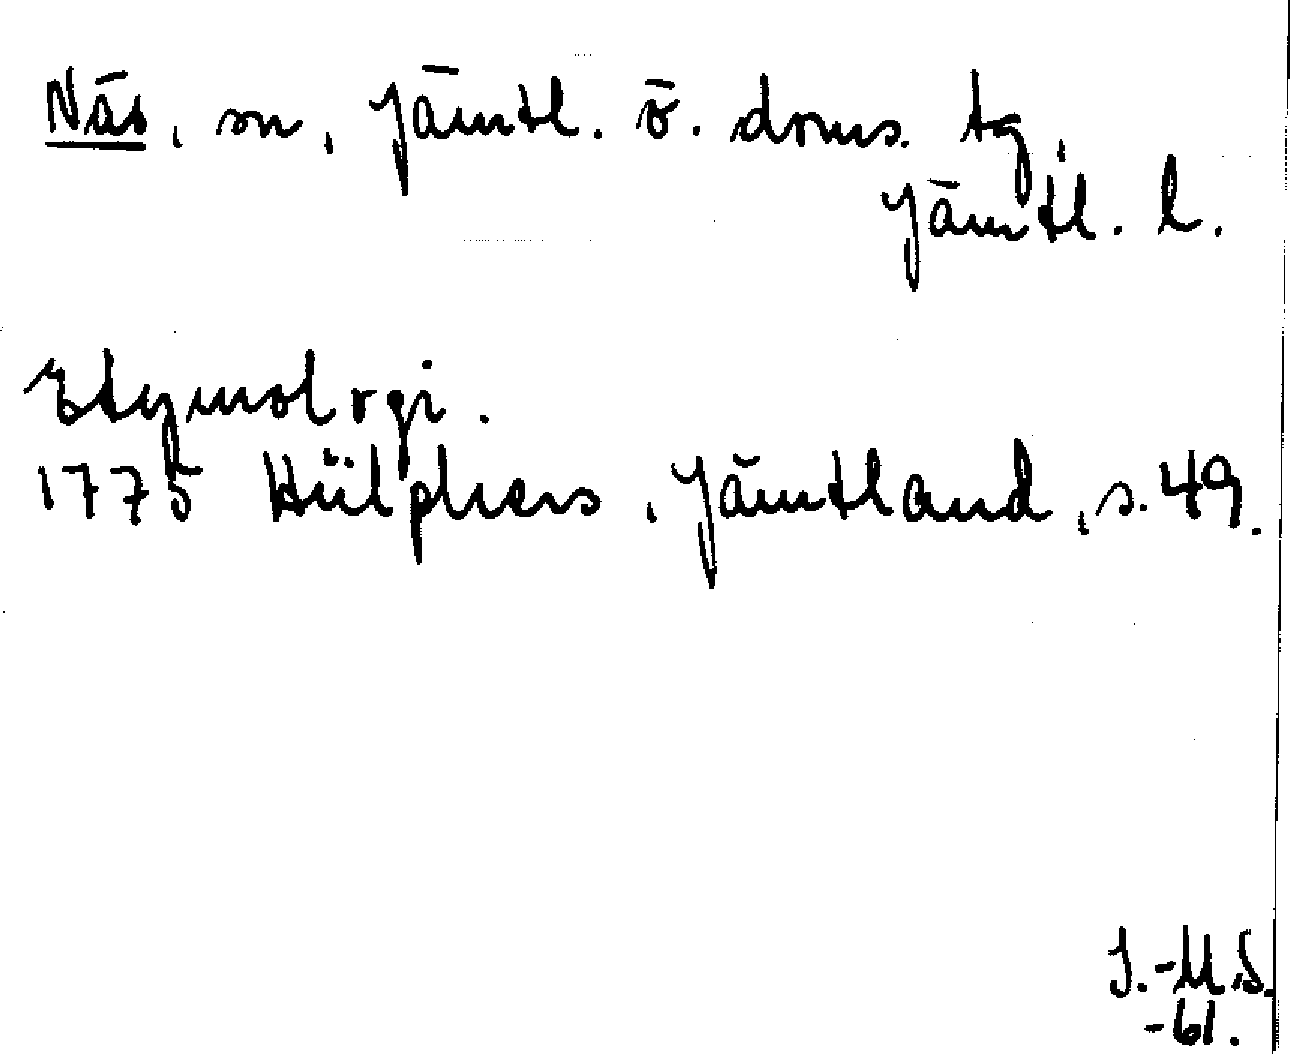 Näs, sn, Jämtl. ö. doms. tg,
Jämtl. l.
Etymologi.
1775 Hülphers, Jämtland, s. 49.
I.-M.S.
-61.